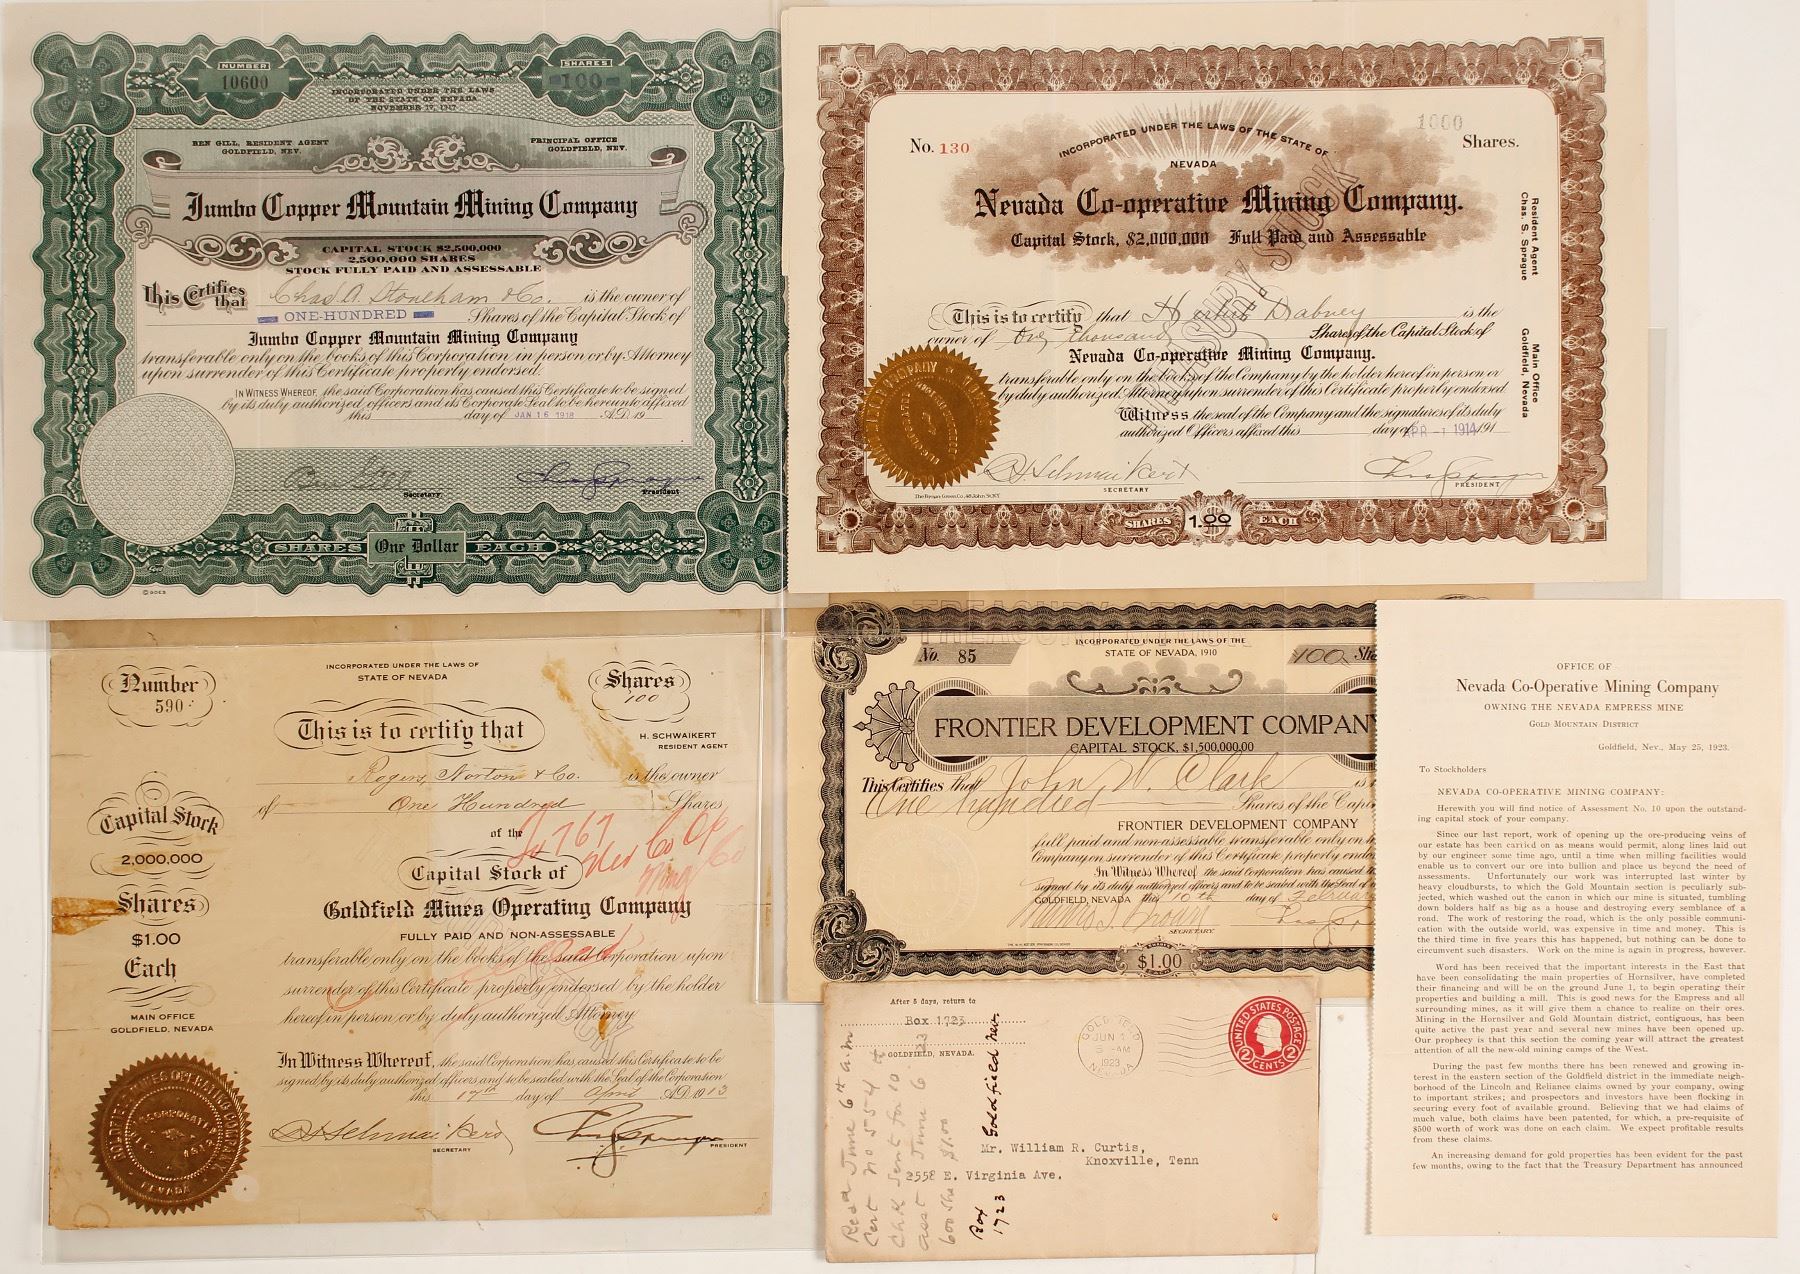 NUMBER
10600
SHARES
100
INCORPORATED UNDER THE LAWS
OF THE STATE OF NEVADA
NOVEMBER 17, 1917
BEN GILL, RESIDENT AGENT
GOLDFIELD, NEV.
PRINCIPAL OFFICE
GOLDFIELD, NEV.
Jumbo Copper Mountain Mining Company
CAPITAL STOCK $2,500,000
2,500,000 SHARES
STOCK FULLY PAID AND ASSESSABLE
This Certifies that Chas. A. Stoneham & Co. is the owner of
ONE-HUNDRED Shares of the Capital Stock of
Jumbo Copper Mountain Mining Company
transferable only on the books of this Corporation in person or by Attorney
upon surrender of this Certificate properly endorsed.
IN WITNESS WHEREOF, the said Corporation has caused this Certificate to be signed
by its duly authorized officers and its Corporate Seal to be hereunto affixed
this day of JAN 16 1918 A.D. 19
Ben Gill
Secretary
Chas S Sprague
President
SHARES One Dollar EACH
© GOES
INCORPORATED UNDER THE LAWS OF THE STATE OF
NEVADA
No. 130
1000
Shares.
Nevada Co-operative Mining Company.
Capital Stock, $2,000,000 Full Paid and Assessable
TREASURY STOCK
Resident Agent
Chas. S. Sprague
Main Office
Goldfield, Nevada
This is to certify that Herbert Dabney is the
owner of One thousand Shares of the Capital Stock of
Nevada Co-operative Mining Company.
transferable only on the books of the Company by the holder hereof in person or
by duly authorized Attorney upon surrender of this Certificate properly endorsed
Witness the seal of the Company and the signatures of its duly
authorized Officers affixed this day of APR -1 1914 191
H Schwaikert
SECRETARY
Chas S Sprague
PRESIDENT
SHARES 1.00 EACH
Number
590
INCORPORATED UNDER THE LAWS OF
STATE OF NEVADA
Shares
100
This is to certify that
H. SCHWAIKERT
RESIDENT AGENT
Rogers, Norton & Co. is the owner
of One Hundred Shares
of the
To 767
Nev Co Op
Mng Co
Capital Stock of
Goldfield Mines Operating Company
FULLY PAID AND NON-ASSESSABLE
transferable only on the books of the said Corporation upon
surrender of this Certificate properly endorsed by the holder
hereof in person, or by duly authorized Attorney.
Capital Stock
2,000,000
Shares
$1.00
Each
MAIN OFFICE
GOLDFIELD, NEVADA
In Witness Whereof, the said Corporation has caused this Certificate to be
signed by its duly authorized officers and to be sealed with the Seal of the Corporation
this 17th day of April A.D. 1913
H Schwaikert
SECRETARY
Chas S Sprague
PRESIDENT
GOLDFIELD MINES OPERATING COMPANY
INCORPORATED
NEVADA
INCORPORATED UNDER THE LAWS OF THE
STATE OF NEVADA, 1910
No. 85
100 Sha
FRONTIER DEVELOPMENT COMPANY
CAPITAL STOCK, $1,500,000.00
This Certifies that John W. Clark is
One hundred Shares of the Capi
FRONTIER DEVELOPMENT COMPANY
full paid and non-assessable transferable only on
Company on surrender of this Certificate properly endor
In Witness Whereof the said Corporation has caused
signed by its duly authorized officers and to be sealed with the Seal of
GOLDFIELD, NEVADA this 10th day of February
SECRETARY
$1.00
After 5 days, return to
Box 1723
GOLDFIELD, NEVADA.
GOLDFIELD
JUN
AM
1923
NEVADA
UNITED STATES POSTAGE
2 CENTS 2
Mr. William R. Curtis,
Knoxville, Tenn
2558 E. Virginia Ave.
Recd June 6th a.m.
Cert no 5554
Chk Sent for 10th
asst June 6. 23
600 sha $1.00
Box 1723
Goldfield Nev.
OFFICE OF
Nevada Co-Operative Mining Company
OWNING THE NEVADA EMPRESS MINE
GOLD MOUNTAIN DISTRICT
Goldfield, Nev., May 25, 1923.
To Stockholders
NEVADA CO-OPERATIVE MINING COMPANY:
Herewith you will find notice of Assessment No. 10 upon the outstand-
ing capital stock of your company.
Since our last report, work of opening up the ore-producing veins of
our estate has been carried on as means would permit, along lines laid out
by our engineer some time ago, until a time when milling facilities would
enable us to convert our ore into bullion and place us beyond the need of
assessments. Unfortunately our work was interrupted last winter by
heavy cloudbursts, to which the Gold Mountain section is peculiarly sub-
jected, which washed out the canon in which our mine is situated, tumbling
down bolders half as big as a house and destroying every semblance of a
road. The work of restoring the road, which is the only possible communi-
cation with the outside world, was expensive in time and money. This is
the third time in five years this has happened, but nothing can be done to
circumvent such disasters. Work on the mine is again in progress, however.
Word has been received that the important interests in the East that
have been consolidating the main properties of Hornsilver, have completed
their financing and will be on the ground June 1, to begin operating their
properties and building a mill. This is good news for the Empress and all
surrounding mines, as it will give them a chance to realize on their ores.
Mining in the Hornsilver and Gold Mountain district, contiguous, has been
quite active the past year and several new mines have been opened up.
Our prophecy is that this section the coming year will attract the greatest
attention of all the new-old mining camps of the West.
During the past few months there has been renewed and growing in-
terest in the eastern section of the Goldfield district in the immediate neigh-
borhood of the Lincoln and Reliance claims owned by your company, owing
to important strikes; and prospectors and investors have been flocking in
securing every foot of available ground. Believing that we had claims of
much value, both claims have been patented, for which, a pre-requisite of
$500 worth of work was done on each claim. We expect profitable results
from these claims.
An increasing demand for gold properties has been evident for the past
few months, owing to the fact that the Treasury Department has announced